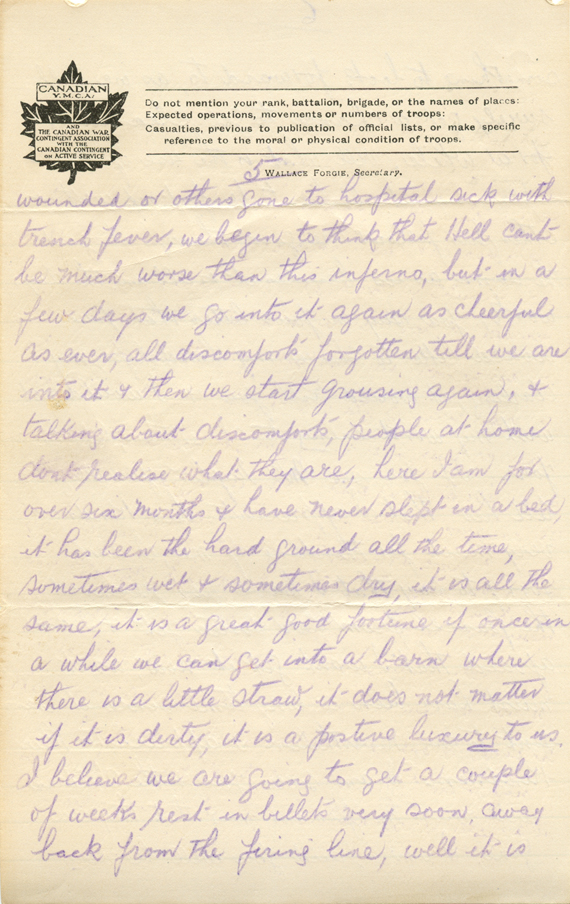 CANADIAN
Y.M.C.A.
AND
THE CANADIAN WAR
CONTINGENT ASSOCIATION
WITH THE
CANADIAN CONTINGENT
ON ACTIVE SERVICE
Do not mention your rank, battalion, brigade, or the names of places:
Expected operations, movements or numbers of troops:
Casualties, previous to publication of official lists, or make specific
reference to the moral or physical condition of troops.
5
WALLACE FORGIE, Secretary.
wounded or others gone to hospital sick with
trench fever, we begin to think that Hell cant
be much worse than this inferno, but in a
few days we go into it again as cheerful
as ever, all discomforts forgotten till we are
into it & then we start grousing again, &
talking about discomforts, people at home
dont realise what they are, here I am for
over six months & have never slept in a bed,
it has been the hard ground all the time,
sometimes wet & sometimes dry, it is all the
same, it is a great good fortune if once in
a while we can get into a barn where
there is a little straw, it does not matter
if it is dirty, it is a postive luxury to us.
I believe we are going to get a couple
of weeks rest in billets very soon, away
back from the firing line, well it is